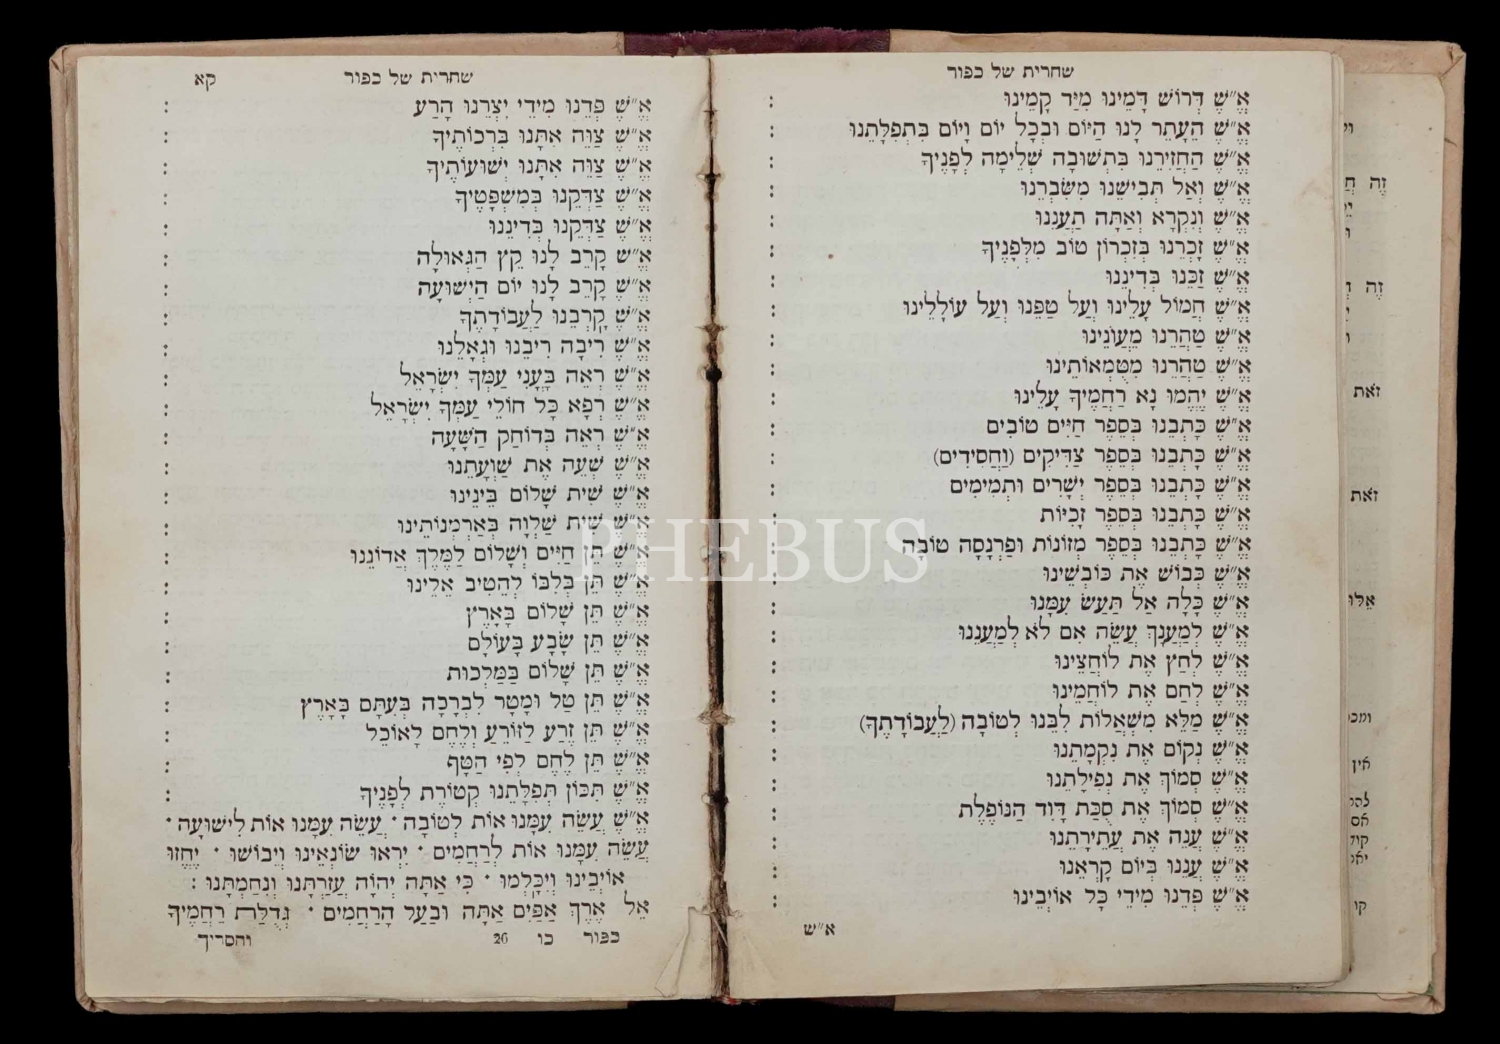 שחרית של כפור
אֱ״שֶׁ דְּרוֹשׁ דָּמֵינוּ מִיַּד קָמֵינוּ :
אֱ״שֶׁ הֵעָתֵר לָנוּ הַיּוֹם וּבְכָל יוֹם וָיוֹם בִּתְפִלָּתֵנוּ :
אֱ״שֶׁ הַחֲזִירֵנוּ בִּתְשׁוּבָה שְׁלֵימָה לְפָנֶיךָ :
אֱ״שֶׁ וְאַל תְּבִישֵׁנוּ מִשִּׂבְרֵנוּ :
אֱ״שֶׁ וְנִקְרָא וְאַתָּה תַעֲנֵנוּ :
אֱ״שֶׁ זָכְרֵנוּ בְּזִכְרוֹן טוֹב מִלְּפָנֶיךָ :
אֱ״שֶׁ זַכֵּנוּ בְּדִינֵנוּ :
אֱ״שֶׁ חֲמוֹל עָלֵינוּ וְעַל טַפֵּנוּ וְעַל עוֹלָלֵינוּ :
אֱ״שֶׁ טַהֲרֵנוּ מֵעֲוֹנֵינוּ :
אֱ״שֶׁ טַהֲרֵנוּ מִטֻּמְאוֹתֵינוּ :
אֱ״שֶׁ יֶהֱמוּ נָא רַחֲמֶיךָ עָלֵינוּ :
אֱ״שֶׁ כָּתְבֵנוּ בְּסֵפֶר חַיִּים טוֹבִים :
אֱ״שֶׁ כָּתְבֵנוּ בְּסֵפֶר צַדִּיקִים (וַחֲסִידִים) :
אֱ״שֶׁ כָּתְבֵנוּ בְּסֵפֶר יְשָׁרִים וּתְמִימִים :
אֱ״שֶׁ כָּתְבֵנוּ בְּסֵפֶר זָכִיּוֹת :
אֱ״שֶׁ כָּתְבֵנוּ בְּסֵפֶר מְזוֹנוֹת וּפַרְנָסָה טוֹבָה :
אֱ״שֶׁ כְּבוֹשׁ אֶת כּוֹבְשֵׁינוּ :
אֱ״שֶׁ כָּלָה אַל תַּעַשׂ עִמָּנוּ :
אֱ״שֶׁ לְמַעַנְךָ עֲשֵׂה אִם לֹא לְמַעֲנֵנוּ :
אֱ״שֶׁ לְחַץ אֶת לוֹחֲצֵינוּ :
אֱ״שֶׁ לְחַם אֶת לוֹחֲמֵינוּ :
אֱ״שֶׁ מַלֵּא מִשְׁאֲלוֹת לִבֵּנוּ לְטוֹבָה (לַעֲבוֹדָתֶךָ) :
אֱ״שֶׁ נְקוֹם אֶת נִקְמָתֵנוּ :
אֱ״שֶׁ סְמוֹךְ אֶת נְפִילָתֵנוּ :
אֱ״שֶׁ סְמוֹךְ אֶת סֻכַּת דָּוִד הַנּוֹפֶלֶת :
אֱ״שֶׁ עֲנֵה אֶת עֲתִירָתֵנוּ :
אֱ״שֶׁ עֲנֵנוּ בְּיוֹם קָרְאֵנוּ :
אֱ״שֶׁ פְּדֵנוּ מִידֵי כָּל אוֹיְבֵינוּ :
א״ש
שחרית של כפור קא
אֱ״שֶׁ פְּדֵנוּ מִידֵי יִצְרֵנוּ הָרַע :
אֱ״שֶׁ צַוֵּה אִתָּנוּ בִּרְכוֹתֶיךָ :
אֱ״שֶׁ צַוֵּה אִתָּנוּ יְשׁוּעוֹתֶיךָ :
אֱ״שֶׁ צַדְּקֵנוּ בְּמִשְׁפָּטֶיךָ :
אֱ״שֶׁ צַדְּקֵנוּ בְּדִינֵנוּ :
אֱ״שֶׁ קָרֵב לָנוּ קֵץ הַגְּאוּלָּה :
אֱ״שֶׁ קָרֵב לָנוּ יוֹם הַיְשׁוּעָה :
אֱ״שֶׁ קָרְבֵנוּ לַעֲבוֹדָתֶךָ :
אֱ״שֶׁ רִיבָה רִיבֵנוּ וּגְאָלֵנוּ :
אֱ״שֶׁ רְאֵה בָּעֳנִי עַמְּךָ יִשְׂרָאֵל :
אֱ״שֶׁ רְפָא כָּל חוֹלֵי עַמְּךָ יִשְׂרָאֵל :
אֱ״שֶׁ רְאֵה בְּדוֹחַק הַשָּׁעָה :
אֱ״שֶׁ שְׁעֵה אֶת שַׁוְעָתֵנוּ :
אֱ״שֶׁ שִׁית שָׁלוֹם בֵּינֵינוּ :
אֱ״שֶׁ שִׁית שַׁלְוָה בְּאַרְמְנוֹתֵינוּ :
אֱ״שֶׁ תֵּן חַיִּים וְשָׁלוֹם לַמֶּלֶךְ אֲדוֹנֵנוּ :
אֱ״שֶׁ תֵּן בְּלִבּוֹ לְהֵטִיב אֵלֵינוּ :
אֱ״שֶׁ תֵּן שָׁלוֹם בָּאָרֶץ :
אֱ״שֶׁ תֵּן שָׂבָע בָּעוֹלָם :
אֱ״שֶׁ תֵּן שָׁלוֹם בַּמַּלְכוּת :
אֱ״שֶׁ תֵּן טַל וּמָטָר לִבְרָכָה בְּעִתָּם בָּאָרֶץ :
אֱ״שֶׁ תֵּן זֶרַע לַזּוֹרֵעַ וְלֶחֶם לָאוֹכֵל :
אֱ״שֶׁ תֵּן לֶחֶם לְפִי הַטָּף :
אֱ״שֶׁ תִּכּוֹן תְּפִלָּתֵנוּ קְטוֹרֶת לְפָנֶיךָ :
אֱ״שֶׁ עֲשֵׂה עִמָּנוּ אוֹת לְטוֹבָה · עֲשֵׂה עִמָּנוּ אוֹת לִישׁוּעָה ·
עֲשֵׂה עִמָּנוּ אוֹת לְרַחֲמִים · יִרְאוּ שׂוֹנְאֵינוּ וְיֵבוֹשׁוּ · יֶחֱזוּ
אוֹיְבֵינוּ וְיִכָּלְמוּ · כִּי אַתָּה יְהֹוָה עֲזַרְתָּנוּ וְנִחַמְתָּנוּ :
אֵל אֶרֶךְ אַפַּיִם אַתָּה וּבַעַל הָרַחֲמִים · גְּדֻלַּת רַחֲמֶיךָ
כפור כו 26 וחסדיך
זֶה
זֶה
זֹאת
זֹאת
אֵלּוּ
אין
PHEBUS